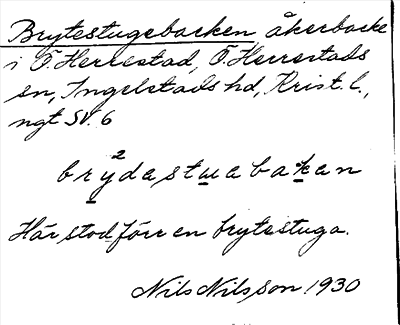 Brytestugebacken åkerbacke
i Ö. Herrestad, Ö. Herrestads
sn, Ingelstads hd, Krist. l.,
ngt SV. 6
brydastuabakan
Här stod förr en brytestuga.
Nils Nilsson 1930